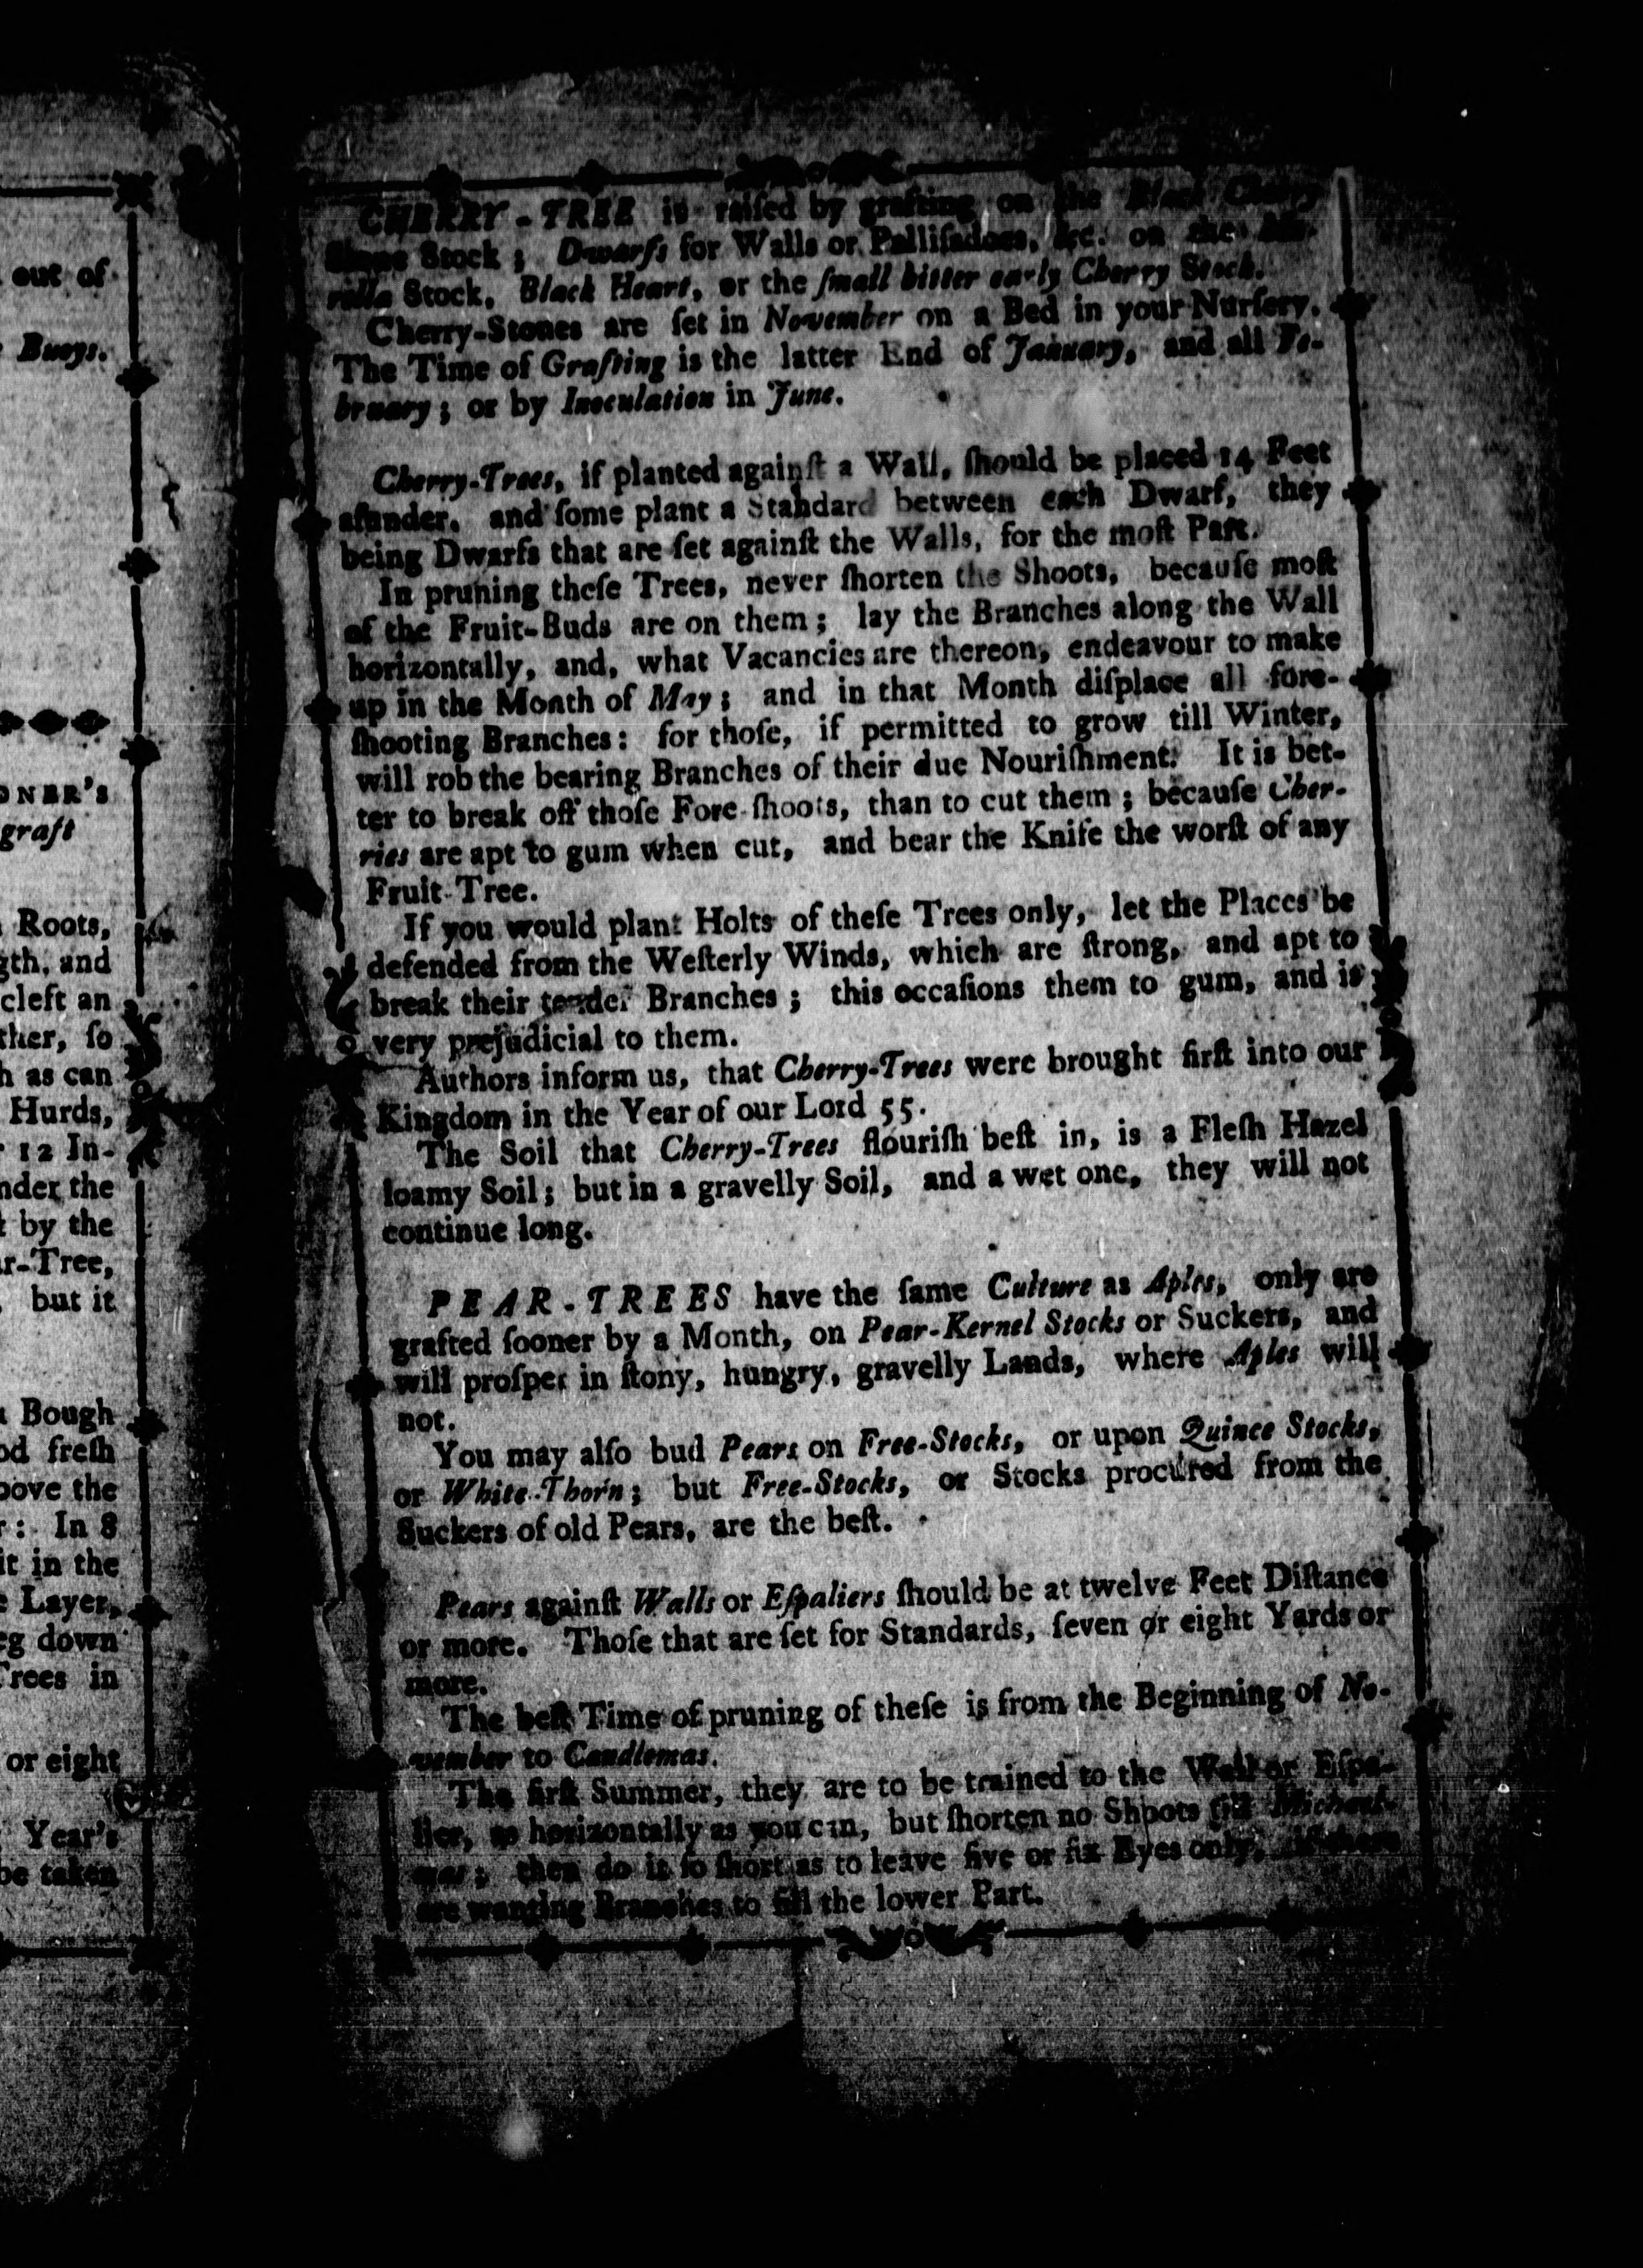 out of
Buoys.
ONER's
graft
Roots,
gth, and
cleft an
ther, ſo
h as can
Hurds,
12 In-
nder the
t by the
r-Tree,
but it
Bough
od freſh
bove the
r: In 8
it in the
e Layer,
eg down
Trees in
or eight
Year's
be taken
CHERRY-TREE is raiſed by grafting on the Black Cherry
Stone Stock; Dwarfs for Walls or Palliſadoes, &c. on the
rilla Stock, Black Heart, or the ſmall bitter early Cherry Stock.
Cherry-Stones are ſet in November on a Bed in your Nurſery.
The Time of Grafting is the latter End of January, and all Fe-
bruary; or by Inoculation in June.
Cherry-Trees, if planted againſt a Wall, ſhould be placed 14 Feet
aſunder, and ſome plant a Standard between each Dwarf, they
being Dwarfs that are ſet againſt the Walls, for the moſt Part.
In pruning theſe Trees, never ſhorten the Shoots, becauſe moſt
of the Fruit-Buds are on them; lay the Branches along the Wall
horizontally, and, what Vacancies are thereon, endeavour to make
up in the Month of May; and in that Month diſplace all fore-
ſhooting Branches: for thoſe, if permitted to grow till Winter,
will rob the bearing Branches of their due Nouriſhment. It is bet-
ter to break off thoſe Fore-ſhoots, than to cut them; becauſe Cher-
ries are apt to gum when cut, and bear the Knife the worſt of any
Fruit-Tree.
If you would plant Holts of theſe Trees only, let the Places be
defended from the Weſterly Winds, which are ſtrong, and apt to
break their tender Branches; this occaſions them to gum, and is
very prejudicial to them.
Authors inform us, that Cherry-Trees were brought firſt into our
Kingdom in the Year of our Lord 55.
The Soil that Cherry-Trees flouriſh beſt in, is a Fleſh Hazel
loamy Soil; but in a gravelly Soil, and a wet one, they will not
continue long.
PEAR-TREES have the ſame Culture as Aples, only are
grafted ſooner by a Month, on Pear-Kernel Stocks or Suckers, and
will proſper in ſtony, hungry, gravelly Lands, where Aples will
not.
You may alſo bud Pears on Free-Stocks, or upon Quince Stocks,
or White-Thorn; but Free-Stocks, or Stocks procured from the
Suckers of old Pears, are the beſt.
Pears againſt Walls or Eſpaliers ſhould be at twelve Feet Diſtance
or more. Thoſe that are ſet for Standards, ſeven or eight Yards or
more.
The beſt Time of pruning of theſe is from the Beginning of No-
vember to Candlemas.
The firſt Summer, they are to be trained to the Wall or Eſpa-
lier, as horizontally as you can, but ſhorten no Shoots till Michael-
mas; then do it ſo ſhort as to leave five or ſix Eyes only, if there
are wanting Branches to fill the lower Part.